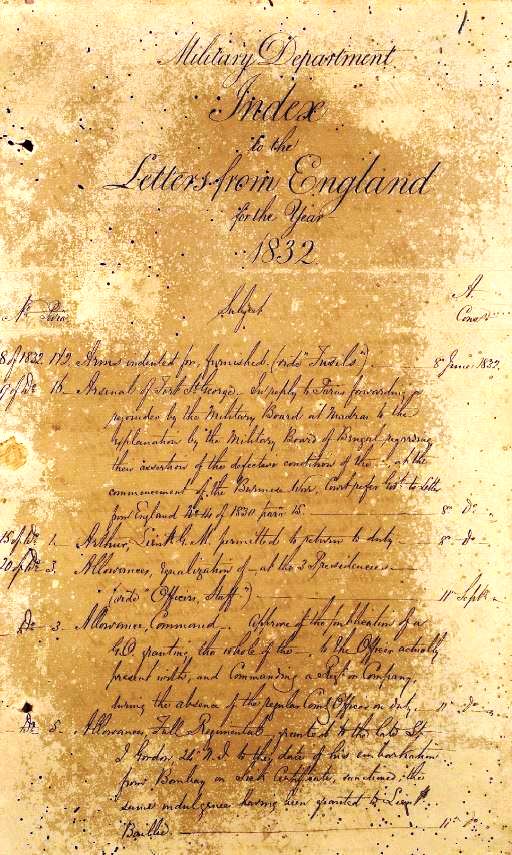 1
Military Department
Index
to the
Letters from England
for the Year
1832
A.
No. Para. Subject Cons
8 of 1832 142. Arms indented for, furnished (vide "Fusils") 8 June 1832.
of Do 16. Arsenal of Fort St George. In reply to forwarding
rejoinder by the Military Board at Madras to the
explanation by the Military Board of Bengal regarding
their assertion of the defective condition of the _, at the
commencement of the Burmese War, Court refer Govt. to Letter
from England No 44 of 1830 para 15. 8 Do
15 of Do 1. Arthur, Lieut G. M. permitted to return to duty 8 Do
20 of Do 3. Allowances, Equalization of _ at the 3 Presidencies
(vide "Officers, Staff.") 11 Septr
Do 3. Allowance, Command _ Approve of the publication of a
G.O. granting the whole of the _, to the Officer actually
present with, and Commanding a Regt or Company,
during the absence of the regular Comg Officer on duty 11 Do
Do 5. Allowances, Full Regimental, granted to the late
J. Gordon 24 N.I. to the date of his embarkation
from Bombay on Sick Certificate, sanctioned; the
same indulgence having been granted to Lieut
Baillie. 11 Do